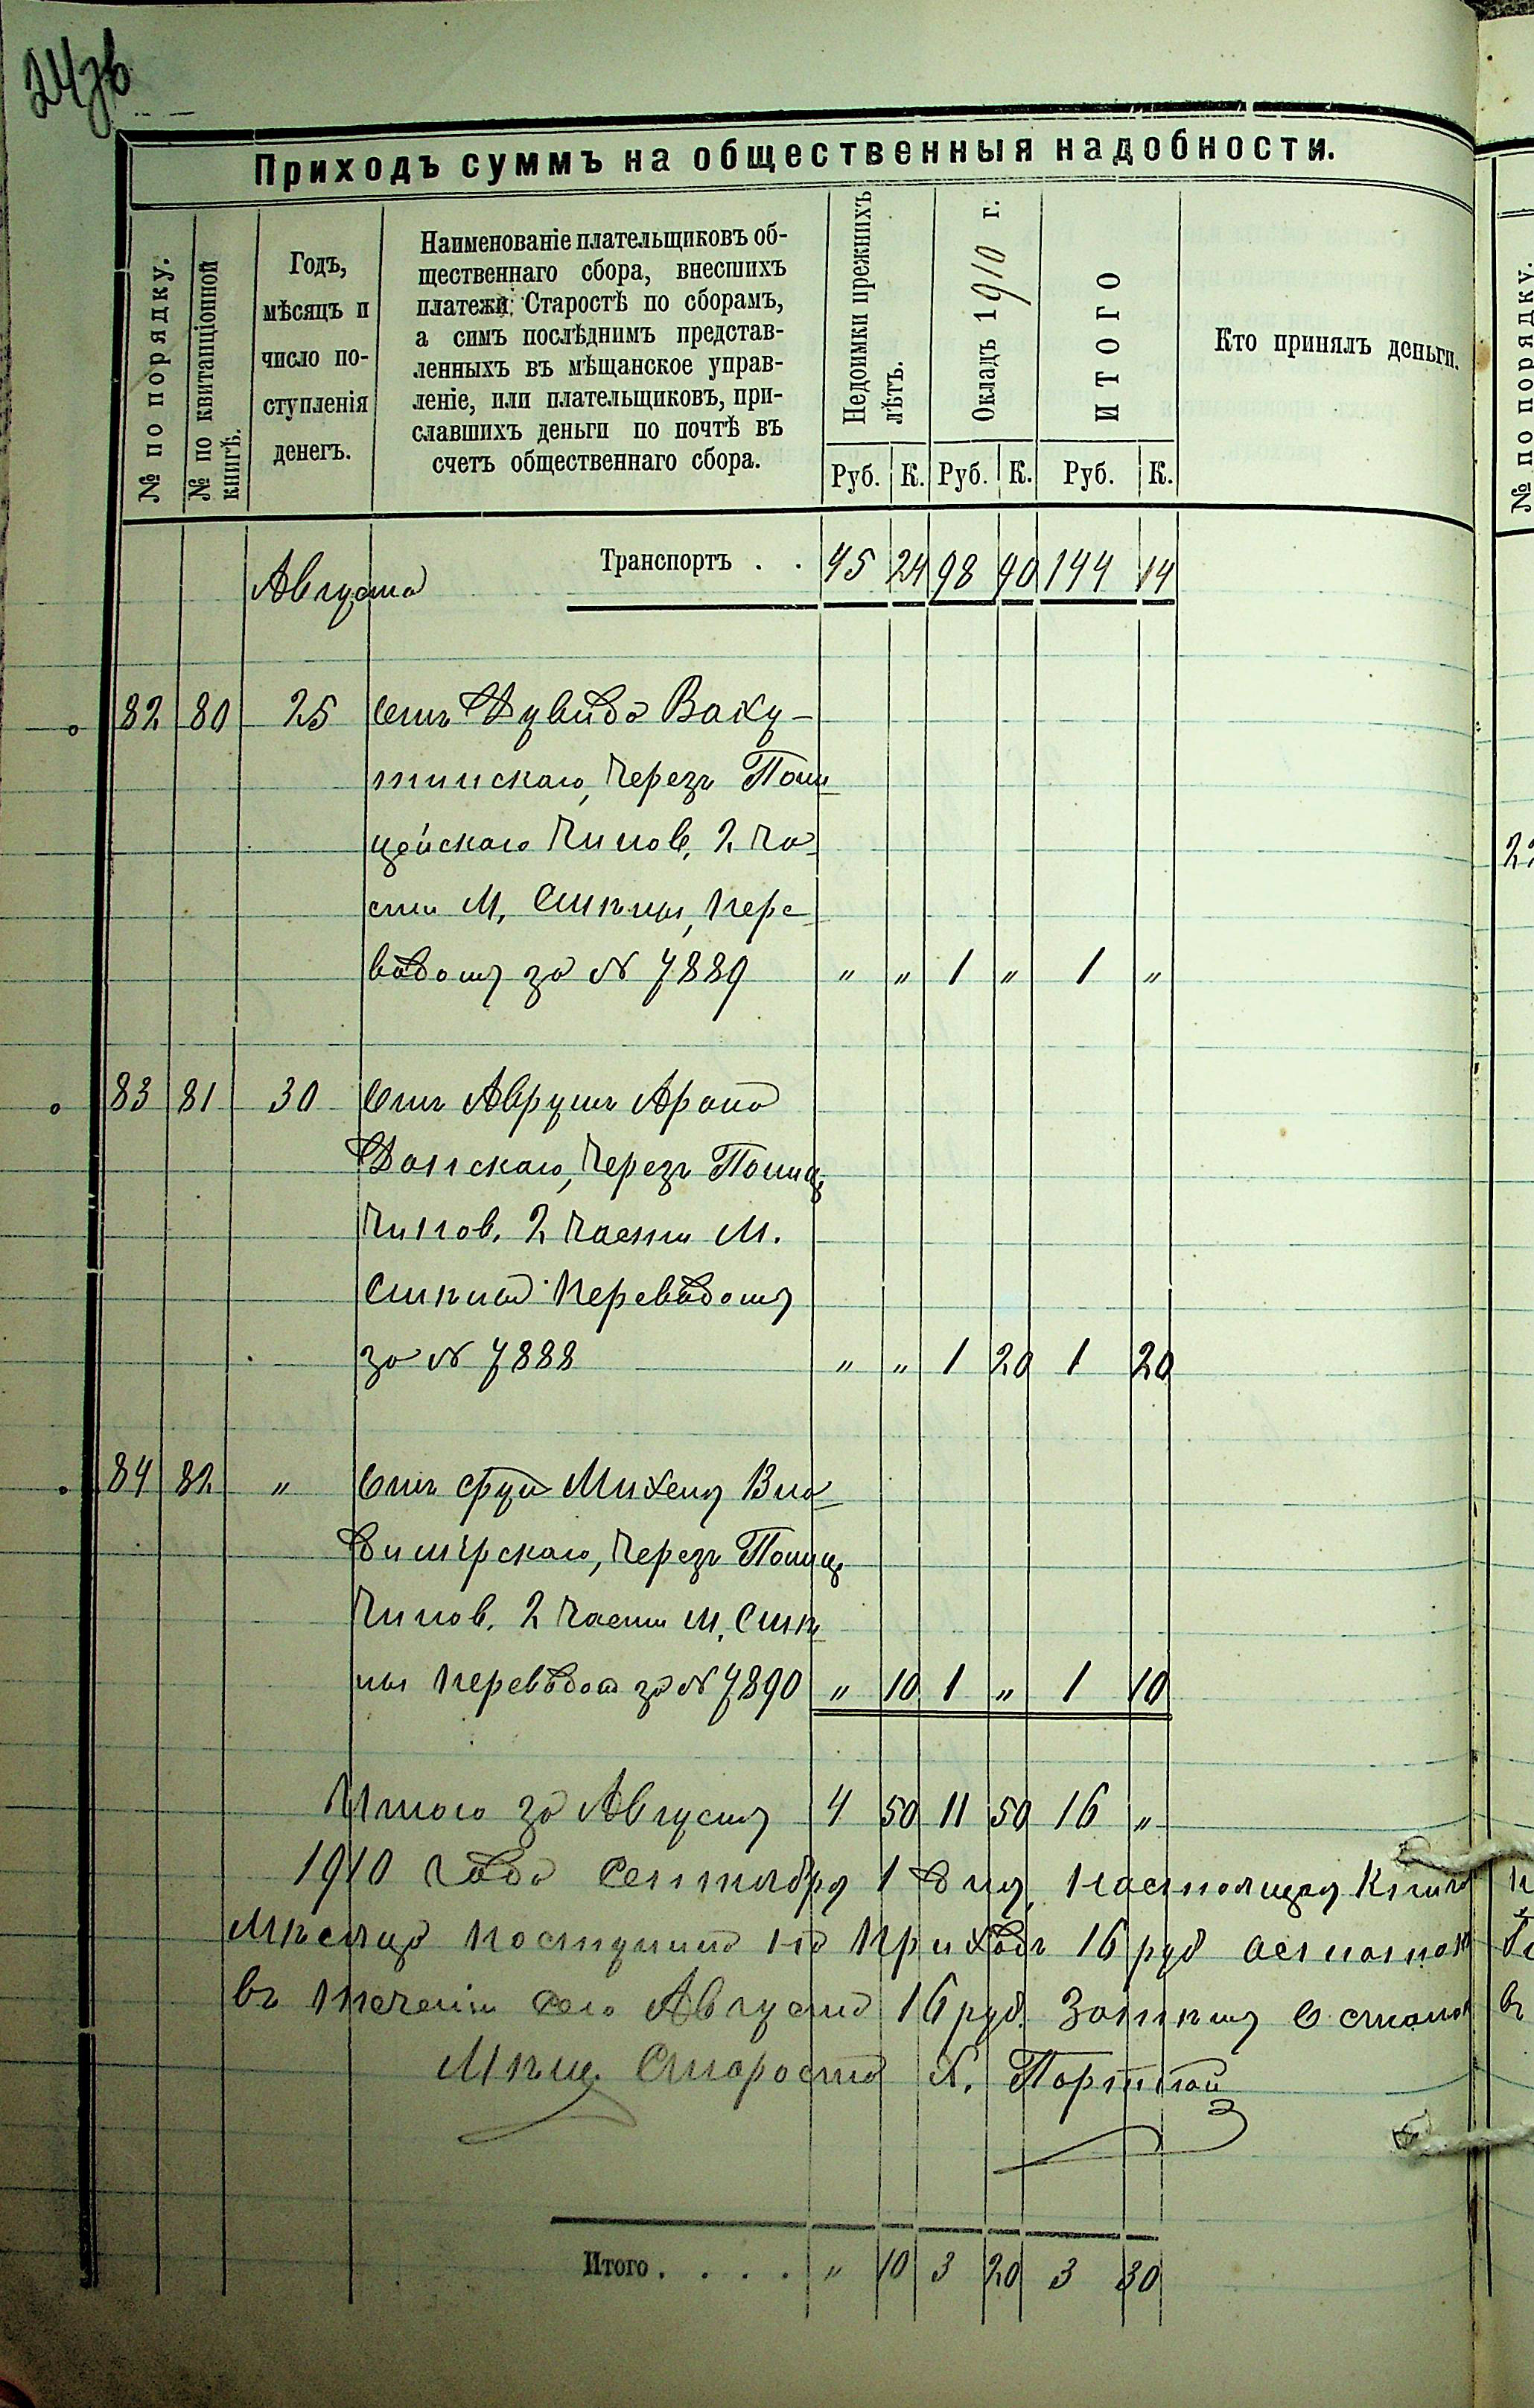 24зв
Приходъ суммъ на общественныя надобности.
№ по порядку.
№ по квитанціонной книгѣ.
Годъ,
мѣсяцъ и
число по-
ступленія
денегъ.
Наименованіе плательщиковъ об-
щественнаго сбора, внесшихъ
платежи: Старостѣ по сборамъ,
а симъ послѣднимъ представ-
ленныхъ въ мѣщанское управ-
леніе, или плательщиковъ, при-
славшихъ деньги по почтѣ въ
счетъ общественнаго сбора.
Недоимки прежнихъ лѣтъ.
Окладъ 1910 г.
ИТОГО
Кто принялъ деньги.
Руб. К. Руб. К. Руб. К.
Транспортъ . . 45 24 98 90 144 14
Августа
82 80 25 Отъ Дувида Ваку-
тинскаго, через Поли
цейскаго Чинов. 2 ча
сти М. Смѣлы, пере
водомъ за № 7889 " " 1 " 1 "
83 81 30 Отъ Аврумъ Арона
Данскаго, через Полиц.
Чинов. 2 части М.
Смѣла переводомъ
за № 7888 " " 1 20 1 20
84 82 " Отъ Михеля Вла
димірскаго, через Полиц.
Чинов. 2 части М. Смѣ
лы переводом за № 7890 " 10 1 " 1 10
Итого за Августъ 4 50 11 50 16 "
1910 года Сентября 1 дня, настоящая Книга
Мѣсяцѣ поступило на приходъ 16 руб
въ теченіи сего Августа 16 руб. Затѣмъ
Мѣщ. Староста Портной
Итого . . . . " 10 3 20 3 30
№ по порядку.